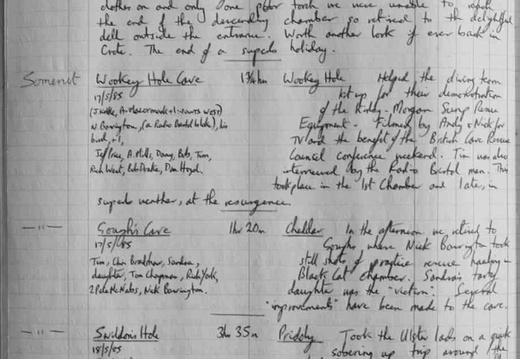 clothes on and only one poor torch we were unable to reach
the end of the descending chamber so retired to the delightful
dell outside the entrance. Worth another look if ever back in
Crete. The end of a superb holiday.
Somerset Wookey Hole Cave 1¾ hrs Wookey Hole Helped the diving team
17/5/85 kit up for their demonstration
of the Sump Rescue
Equipment. Filmed by Andy + Nick for
N. Barrington, (a Radio Bristol bloke), his
TV and the benefit of the British Cave Rescue
Jeff Price, A. Mills, Dany, Bob, Tim,
Council conference weekend. Tim was also
Rich West, Bob Drake, Dan Hoyd.
interviewed by the Radio Bristol man. This
took place in the 1st Chamber and later, in
superb weather, at the resurgence.
—"— Gough's Cave 1hr 20m Cheddar In the afternoon we retired to
17/5/85 Goughs where Nick Barrington took
still shots of practice rescue hauling in
Tim, Chris Bradshaw, Sandra,
Black Cat chamber. Sandra's
daughter, Tom Chapman, Rich York,
daughter was the "victim". Several
2 Pete McNabs, Nick Barrington.
"improvements" have been made to the cave.
—"— Swildons Hole 3hr 35m Priddy Took the Ulster lads on a quick
18/5/85 sobering up trip around the